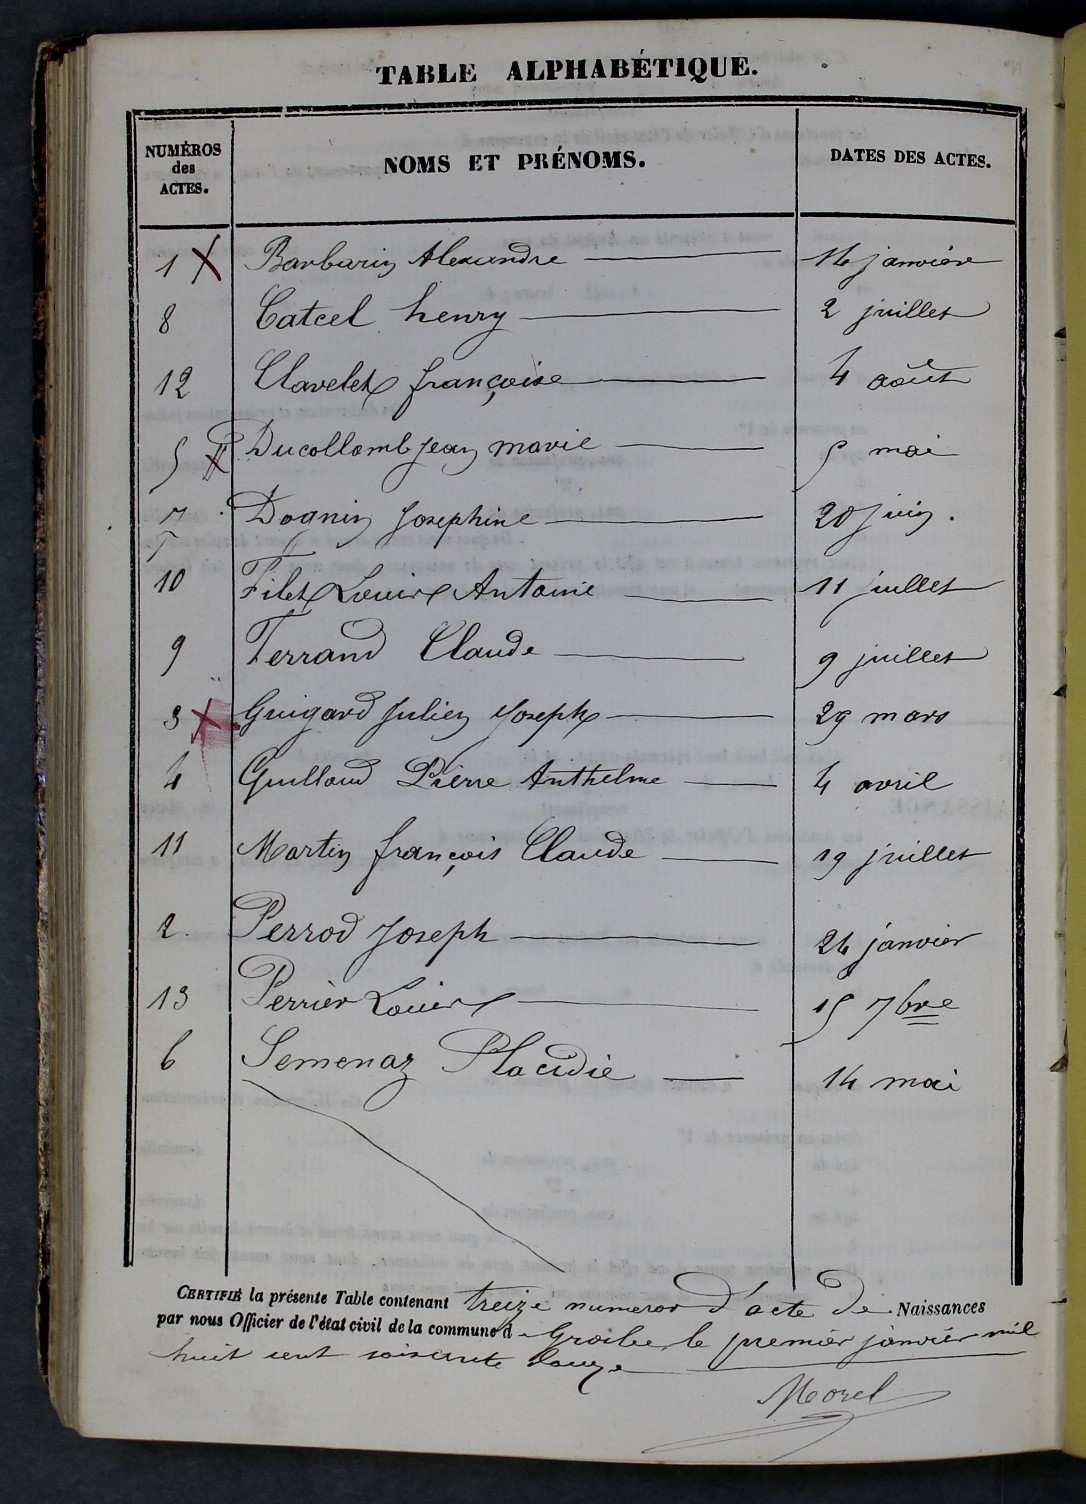 TABLE ALPHABÉTIQUE.
NUMÉROS des ACTES. NOMS ET PRÉNOMS. DATES DES ACTES.
1 Barbarin Alexandre 16 janvière
8 Catcel henry 2 juillet
12 Clavelet françoise 4 août
5 Ducollomb jean marie 5 mai
7 Dognin Josephine 20 juin.
10 Filet Louis Antoine 11 juillet
9 Ferrand Claude 9 juillet
3 Guigard Julien Joseph 29 mars
4 Guillaud Pierre Anthelme 4 avril
11 Martin françois Claude 19 juillet
2. Perrod Joseph 26 janvier
13 Perrier Louis 15 7bre
6 Semenaz Placidie 14 mai
CERTIFIÉ la présente Table contenant treize numeros d'acte de Naissances
par nous Officier de l'état civil de la commune d le premier janvier mil
huit cent soixante douze
Morel